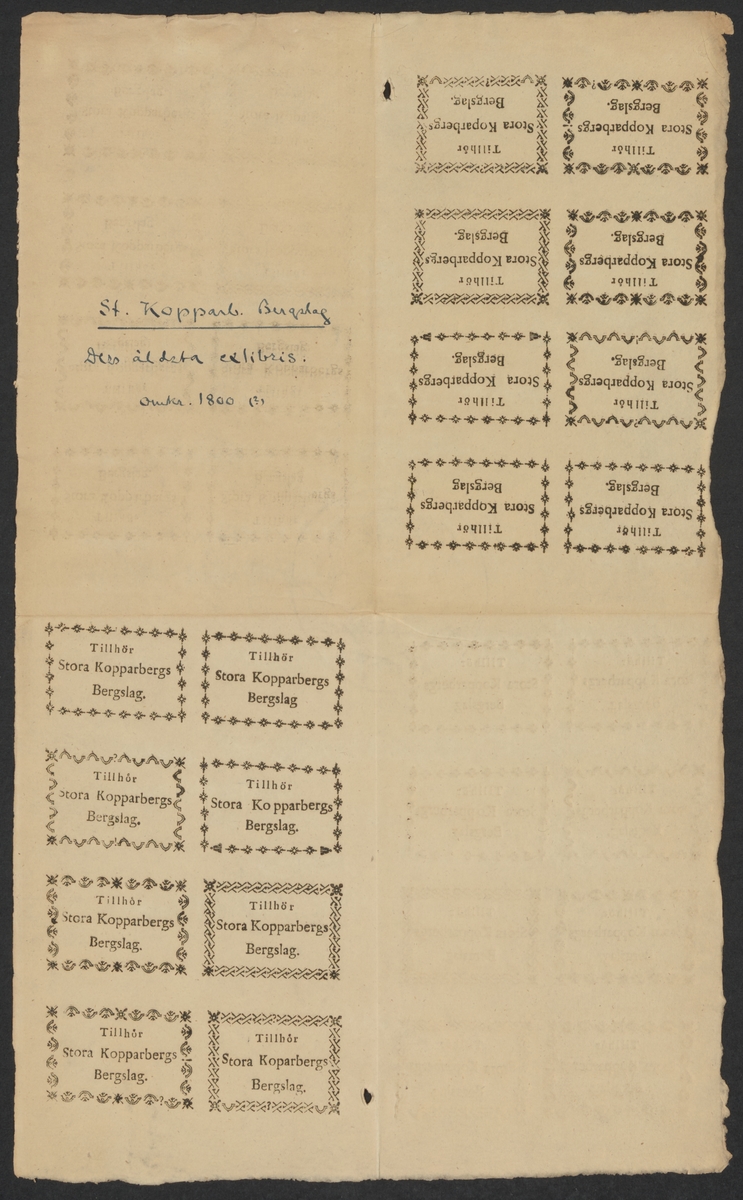 St. Kopparb. Bergslag
Dess äldsta exlibris.
Omkr. 1800 (?)
Tillhör
Stora Koparbergs
Bergslag.
Tillhör
Stora Kopparbergs
Bergslag.
Tillhör
Stora Kopparbergs
Bergslag.
Tillhör
Stora Kopparbergs
Bergslag.
Tillhör
Stora Kopparbergs
Bergslag.
Tillhör
Stora Kopparbergs
Bergslag.
Tillhör
Stora Kopparbergs
Bergslag
Tillhör
Stora Kopparbergs
Bergslag.
Tillhör
Stora Kopparbergs
Bergslag.
Tillhör
Stora Kopparbergs
Bergslag
Tillhör
Stora Kopparbergs
Bergslag.
Tillhör
Stora Kopparbergs
Bergslag.
Tillhör
Stora Kopparbergs
Bergslag.
Tillhör
Stora Kopparbergs
Bergslag.
Tillhör
Stora Kopparbergs
Bergslag.
Tillhör
Stora Koparbergs
Bergslag.